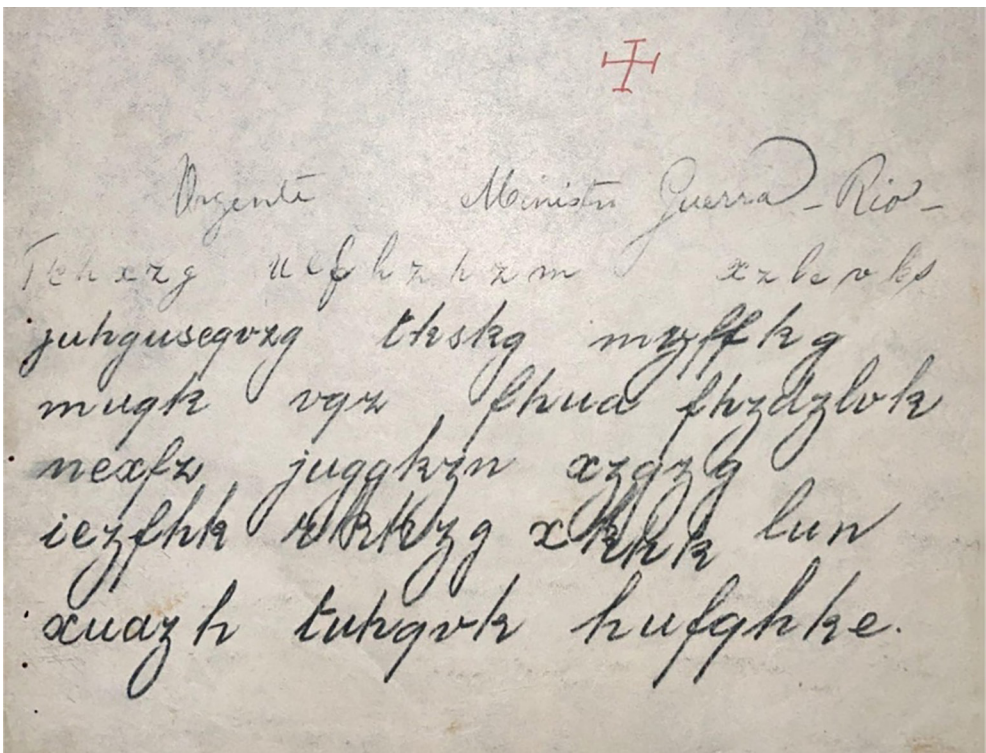 Urgente Ministro Guerra - Rio -
Tehxzg uefhzhzm xzlevks
juhgusegvzg tkskg mzffkg
mugk vgz fhua fhzdzlvk
nexfz juggkvzn xzgzg
iezfhk xkhk lun
xuazh tuhgvk hufghke.